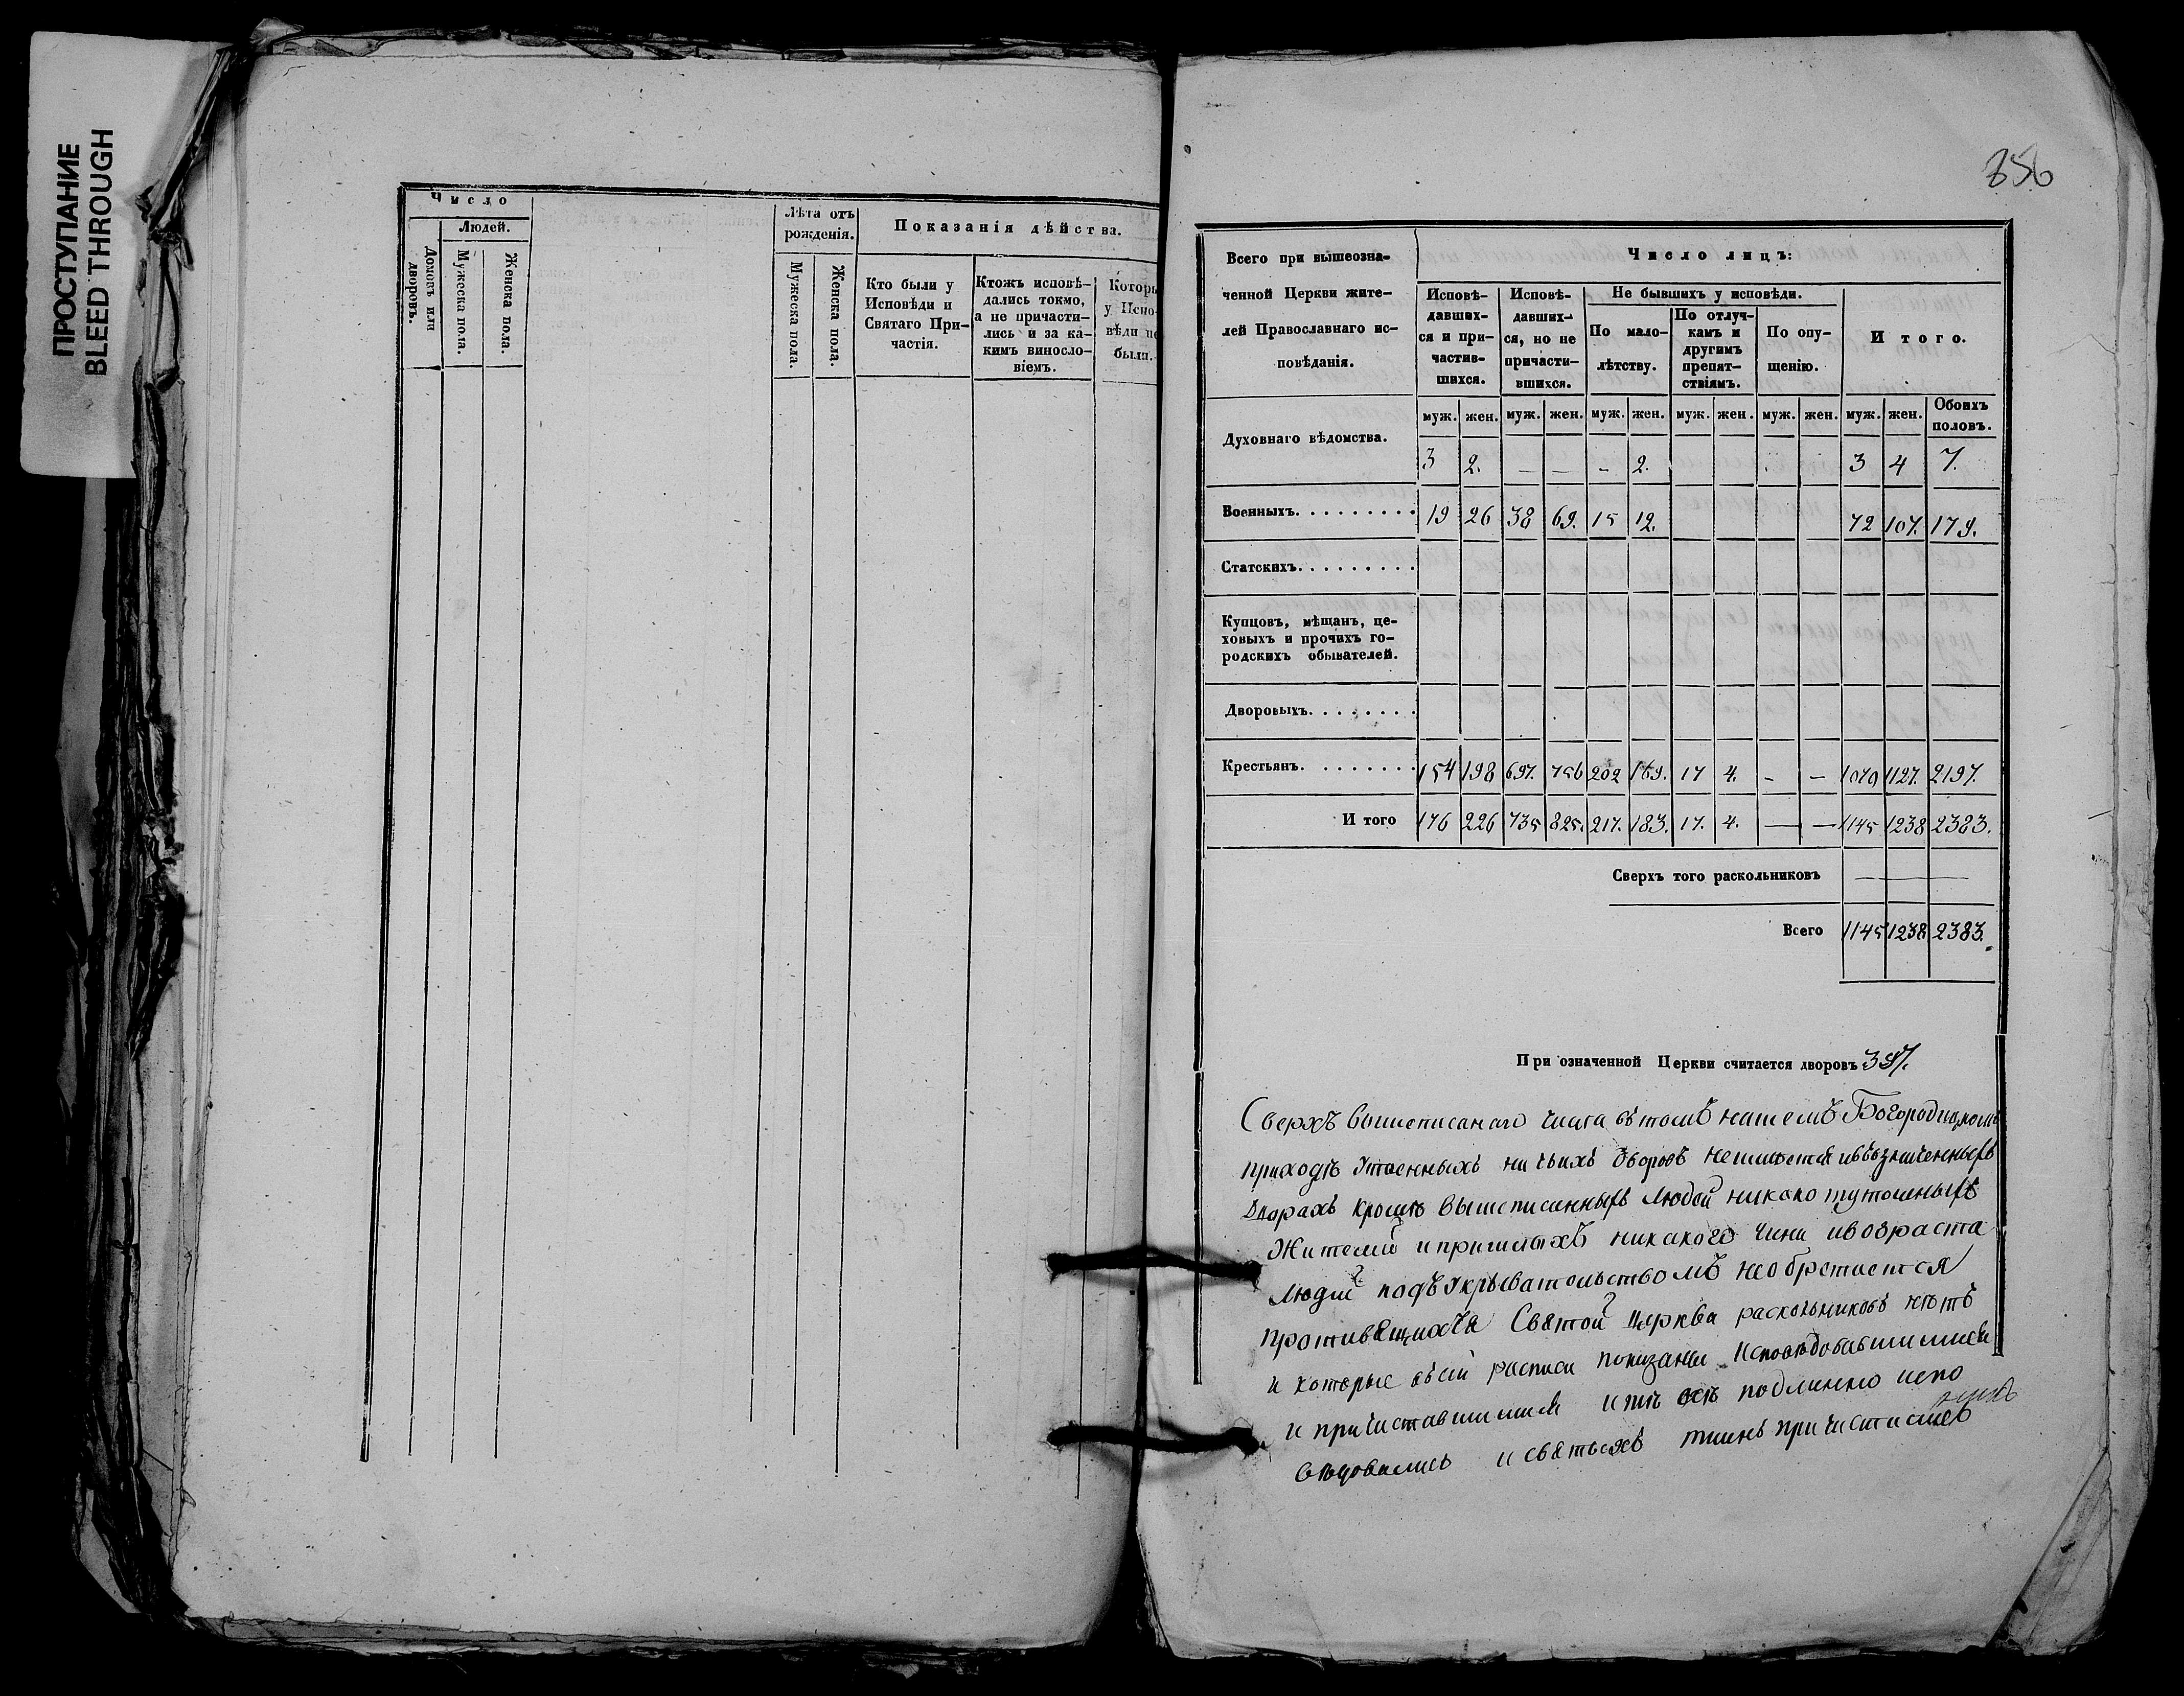 ПРОСТУПАНИЕ
BLEED THROUGH
Число
Людей.
Домовъ или дворовъ.
Мужеска пола.
Женска пола.
Лѣта отъ рожденія.
Мужеска пола.
Женска пола.
Показанія дѣйства.
Кто были у
Исповѣди и
Святаго При-
частія.
Ктожъ исповѣ-
дались токмо,
а не причасти-
лись и за ка-
кимъ винословіемъ.
Которы
у Испо-
вѣди не
были.
356
Всего при вышеозна-
ченной Церкви жите-
лей Православнаго ис-
повѣданія.
Число лицъ:
Исповѣ-
давших-
ся и при-
частив-
шихся.
Исповѣ-
давших-
ся, но не
причасти-
вшихся.
Не бывшихъ у исповѣди.
По мало-
лѣтству.
По отлуч-
камъ и
другимъ
препят-
ствіямъ.
По опу-
щенію.
И того.
муж. жен. муж. жен. муж. жен. муж. жен. муж. жен. муж. жен. Обоихъ половъ.
Духовнаго вѣдомства. 3 2. — — - 2. 3 4 7.
Военныхъ. 19 26 38 69. 15 12. 72 107. 179.
Статскихъ.
Купцовъ, мѣщанъ, це-
ховыхъ и прочихъ го-
родскихъ обывателей.
Дворовыхъ.
Крестьянъ. 154 198 697. 756 202 169. 17 4. - — 1070 1127. 2197.
И того 176 226 735 825. 217. 183. 17. 4. — — 1145 1238 2383.
Сверхъ того раскольниковъ ——
Всего 1145 1238 2383.
При означенной Церкви считается дворовъ
Сверхъ вышеписанаго числа втомъ нашемъ Богородицкомъ
приходѣ Утаенныхъ ничьихъ дворовъ
Дворахъ кромѣ вышеписанныхъ людей никако тутошныхъ
Жителей ипришлыхъ никакого чина ивозраста
людей подъ Укрывательствомъ необретается
противящихся Святой Церкви раскольниковъ нѣтъ
и которые всей росписи показаны исповѣдовавшимися
и причаставшимися итѣ всѣ подлинно испо
вѣдовались исвятыхъ таинъ причастились